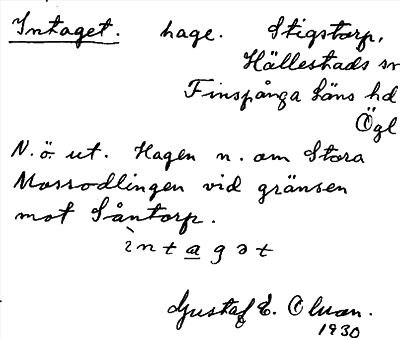 Intaget. hage. Stigstorp,
Hällestads sn
Finspånga läns hd
Ögl
N. ö. ut. Hagen n. om Stora
Mossodlingen vid gränsen
mot Såntorp.
ìntagət
Gustaf E. Olsson.
1930